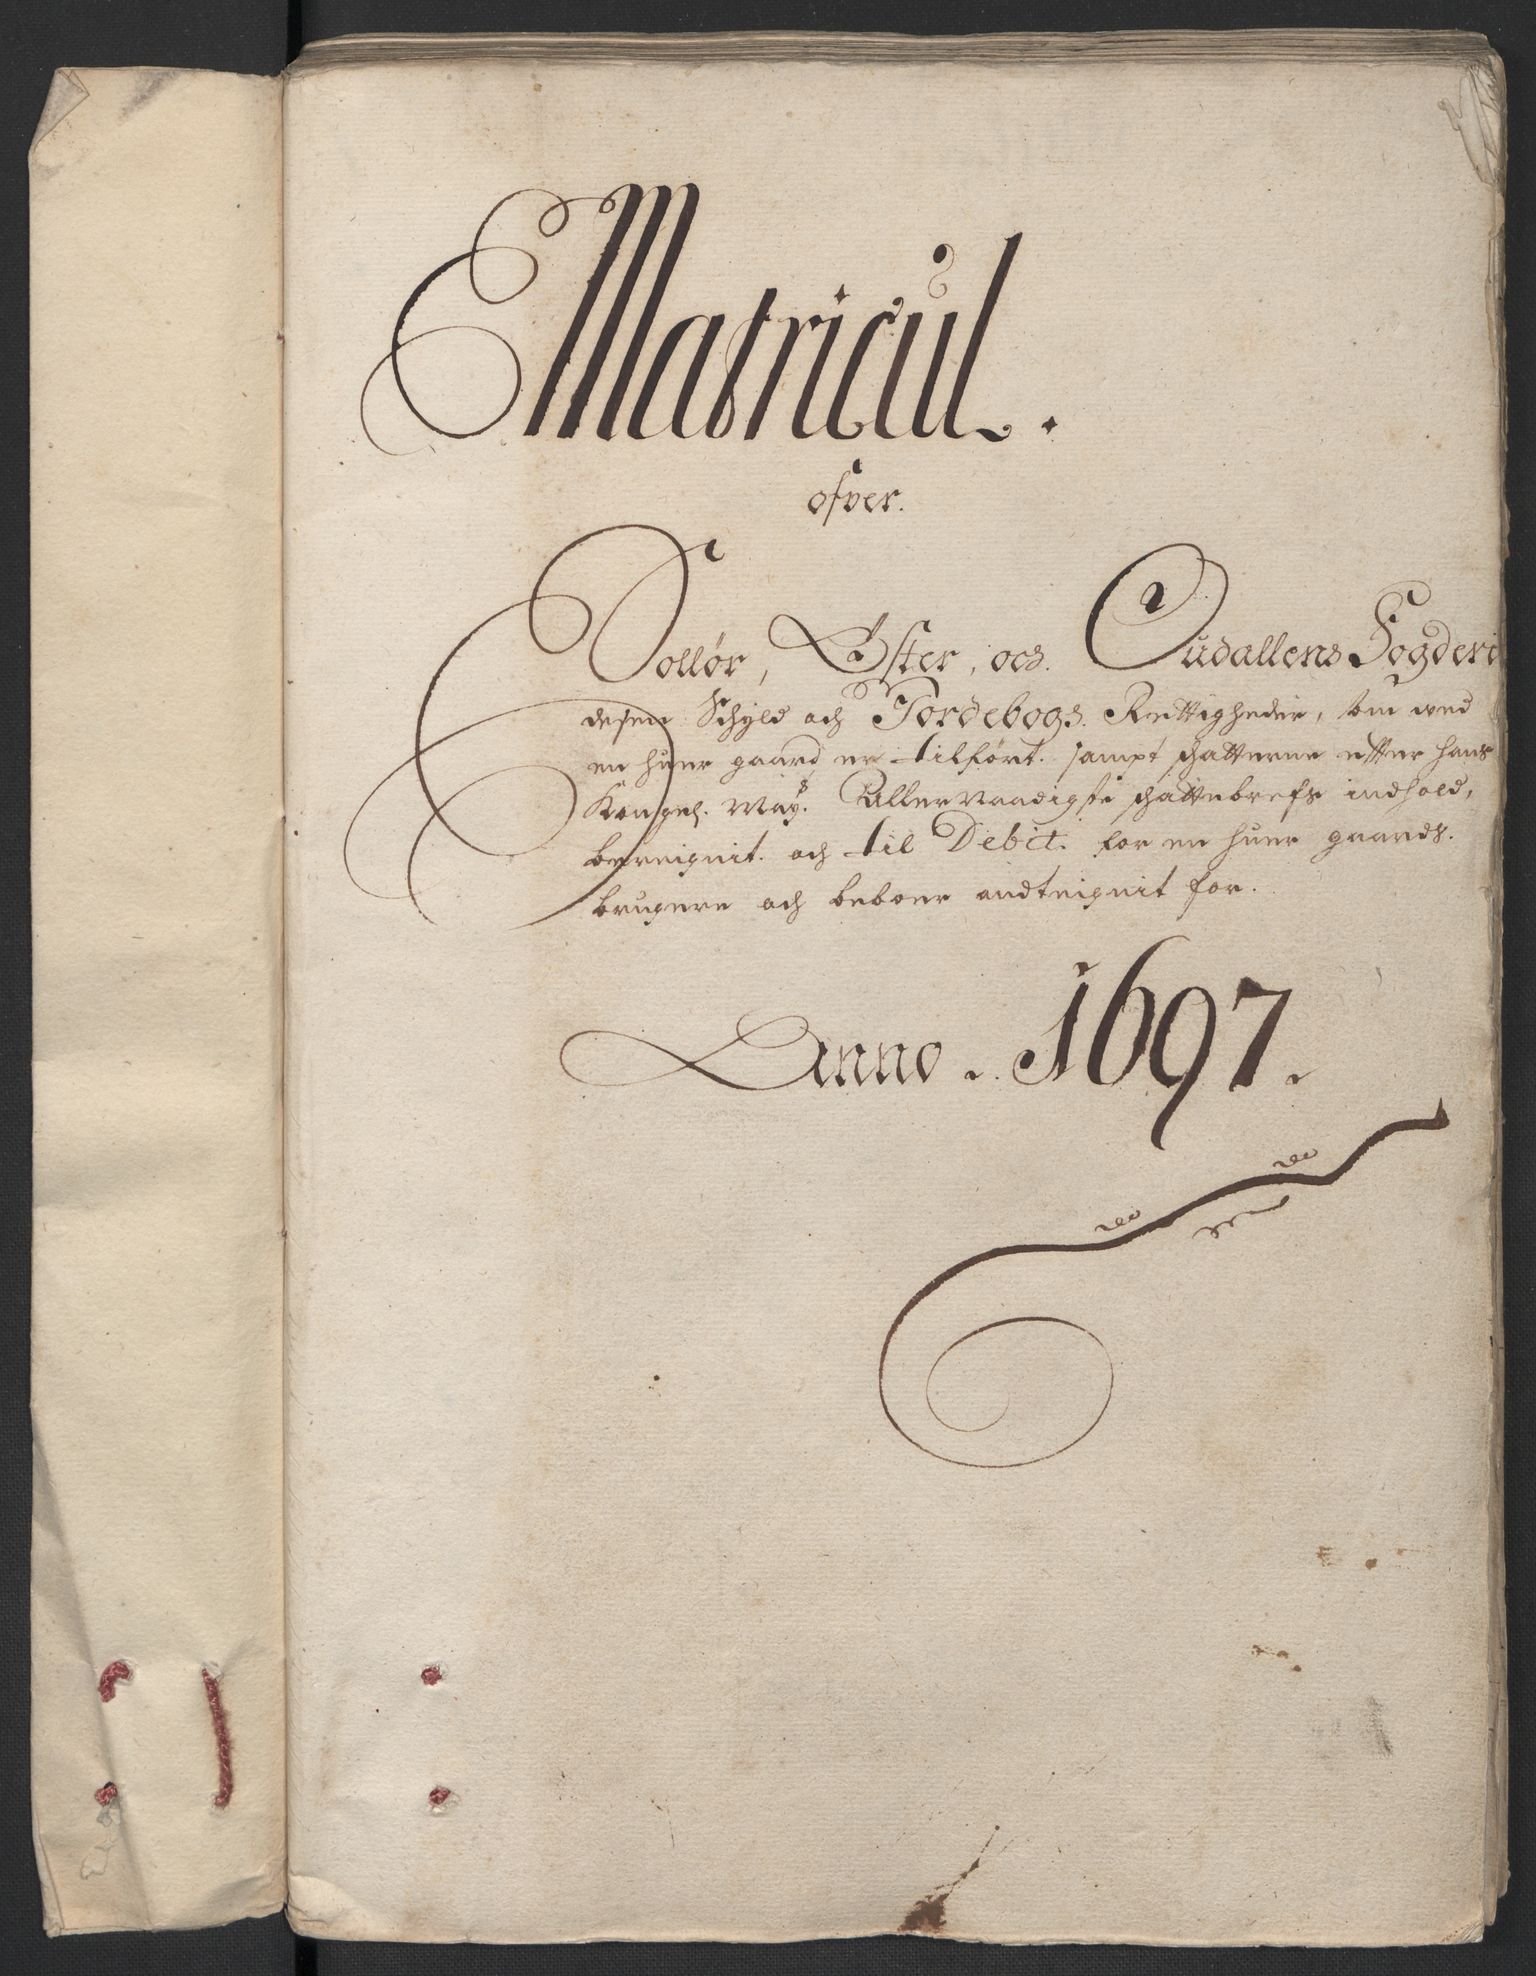 Matricul.
ofver.
Sollør, Øster, och Oudallens Fogderi
desen Schyld och Jordebogs Rettigheder, som wed
en huer gaard er tilført. sampt schatterne efter hans
Kongel. May.s Allernaadigste schattebrefs indhold,
bereignit. och til Debit. for en huer gaards.
brugere och beboer andteignit for.
Anno. 1697.